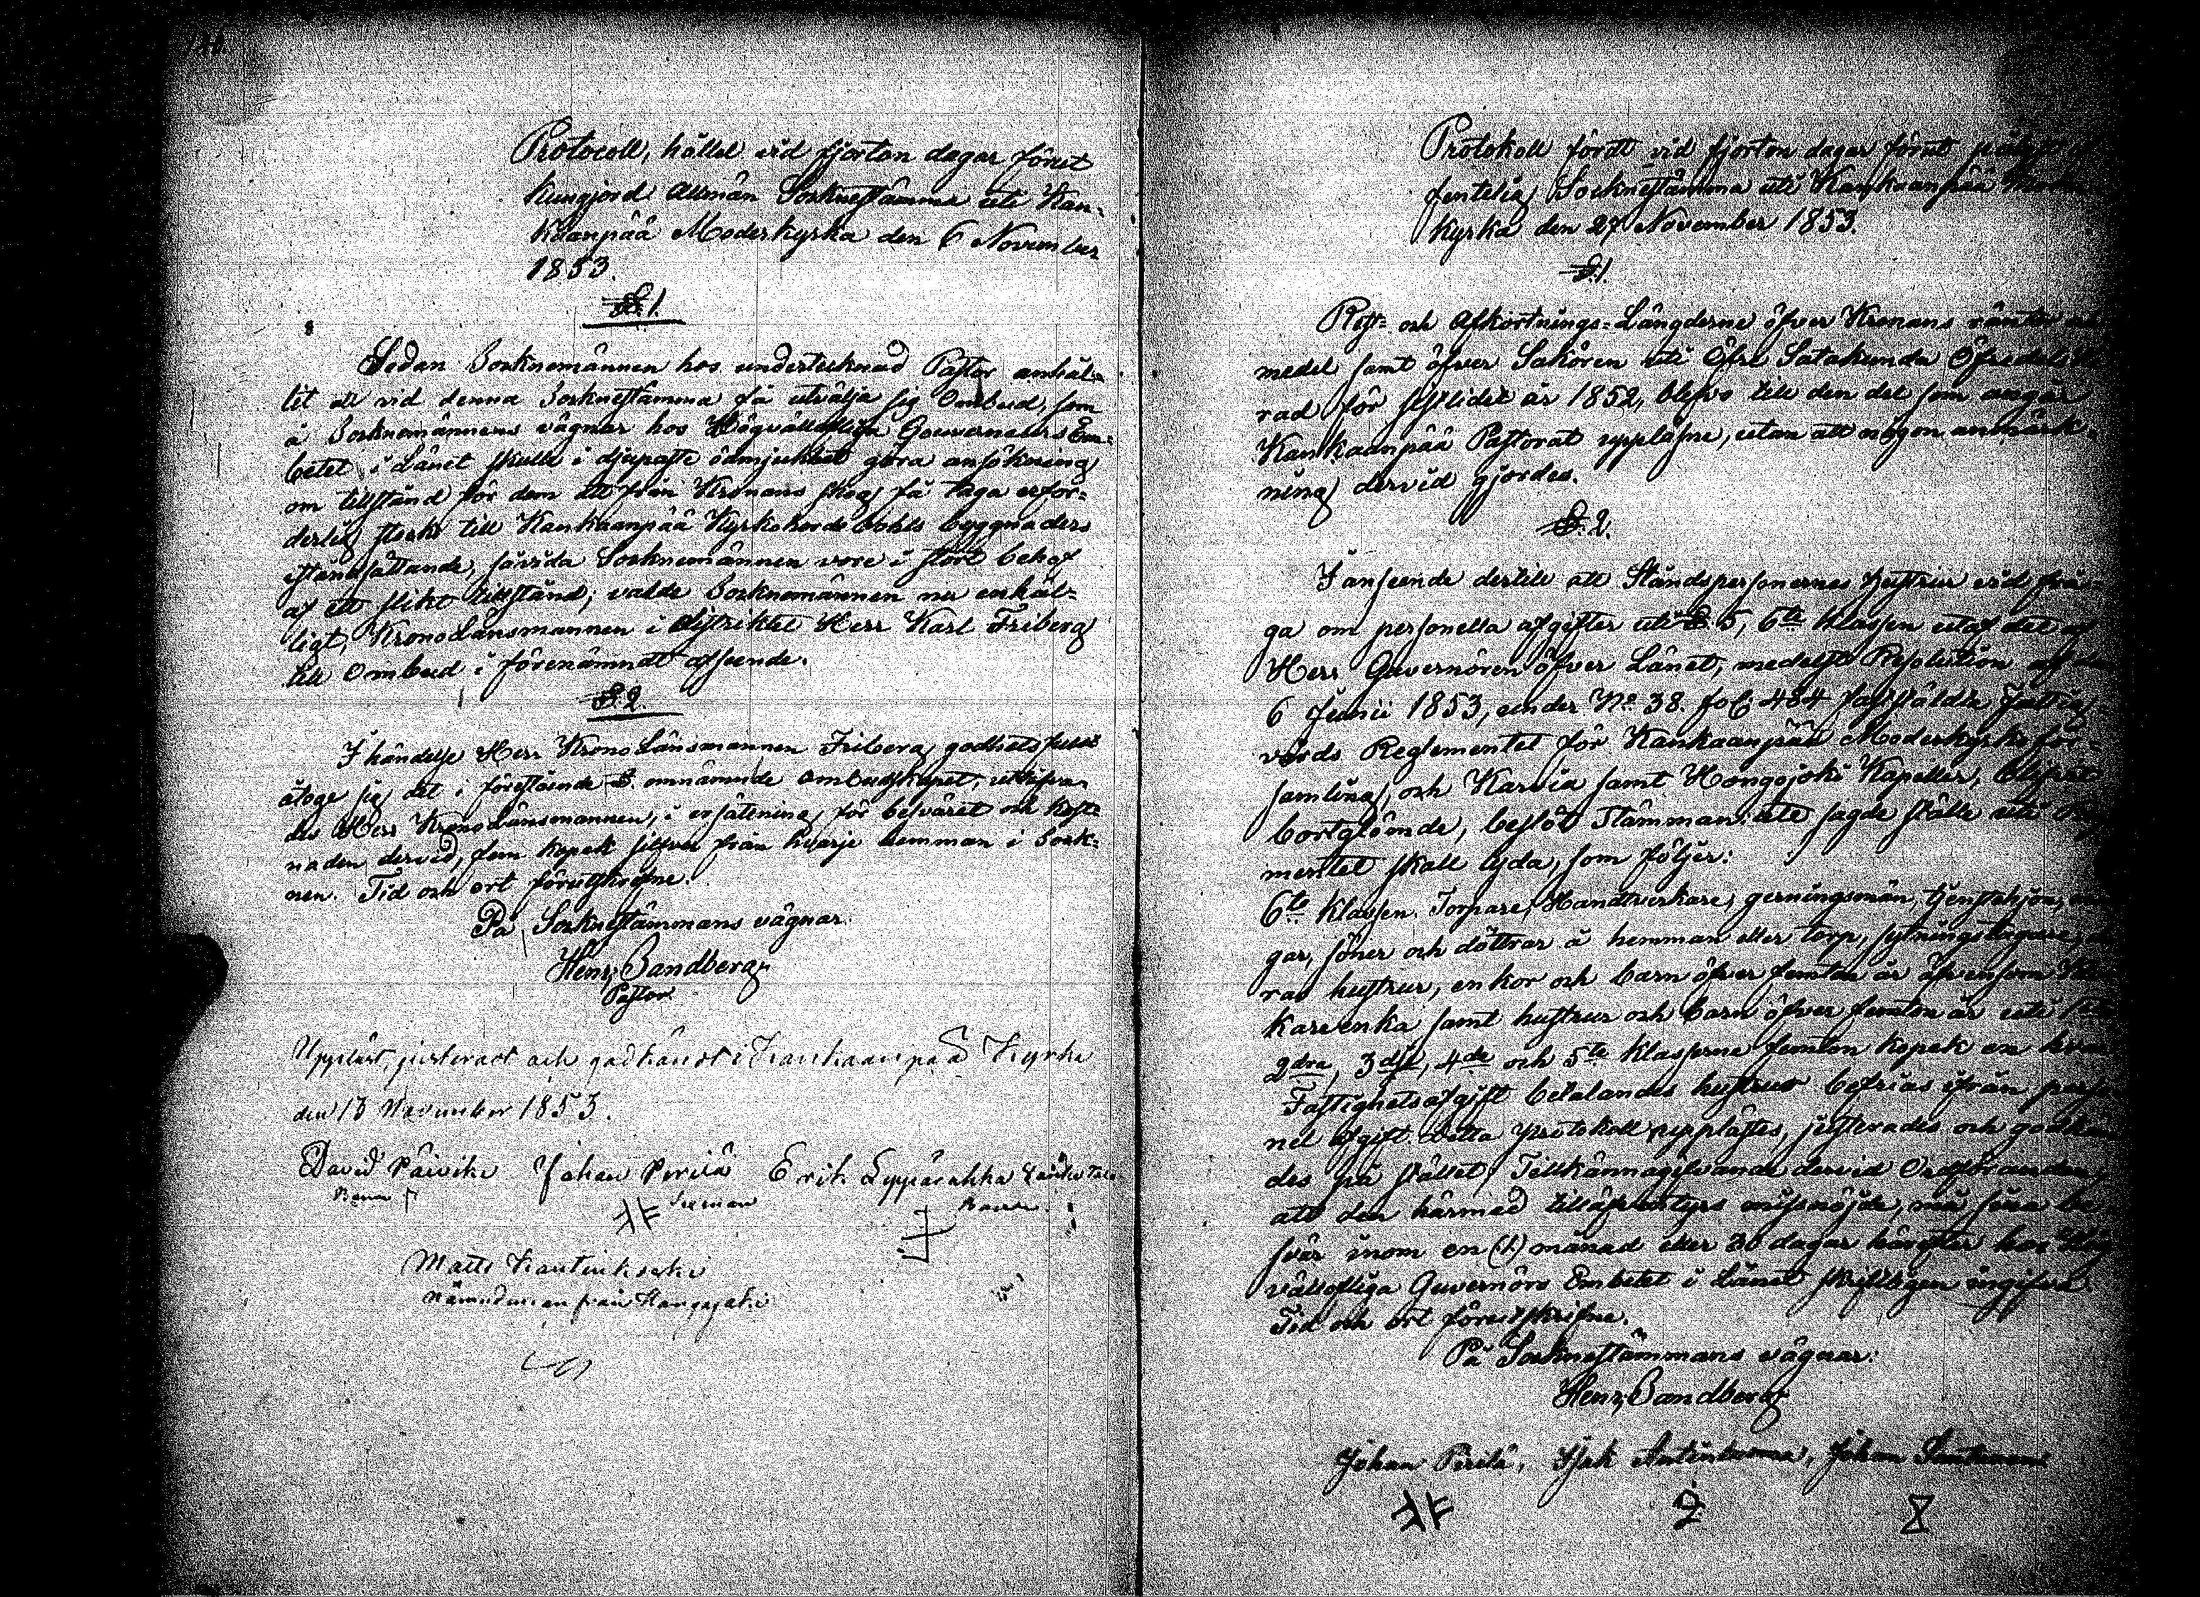 Protocoll, hållet vid fjorton dagar förut
kungjord allmän Socknestämma uti Kan-
kaanpää Moderkyrka den 6 November
1853.
§ 1.
Sedan Socknemännen hos undertecknad Pastor anhål-
lit att vid denna Socknestämma få utvälja sig Ombud, som
å Socknemännens vägnar hos Högvällofliga Gouverneurs Em-
betet i Länet skulle i djupaste ödmjukhet göra ansökning
om tillstånd för dem att från Kronans skog få taga erfor-
derlig stock till Kankaanpää Kyrkoherde Bohls byggnaders
iståndsättande, såvida Socknemännen vore i stort behof
af ett slikt tillstånd; valde Socknemännen nu enhäl-
ligt, KronoLänsmannen i distriktet Herr Karl Friberg
till Ombud i förenämndt afseende.
§ 2.
I händelse Herr KronoLänsmannen Friberg godhetsfullt
åtoge sig det i förestående §. omnämnde ombudskapet, utlofva-
des Herr KronoLänsmannen, i ersättning för besväret och kost-
naden dervid, fem kopek silfver från hvarje hemman i Sock-
nen. Tid och ort förutskrefne.
På Socknestämmans vägnar:
Henr. Sandberg.
Pastor.
Uppläst, justeradt och godkändt i Kankaanpää Kyrka
den 13 November 1853.
David Päivike Johan Perilä Erik Leppärahka
Bonde Sexman Bonde
Matts
Nämndeman från Hongojoki
Protokoll fördt vid fjorton dagar förut
fentelig Socknestämma uti Kankaanpää
kyrka den 27 November 1853.
§ 1.
Rest- och Afkortnings-Längderne öfver Kronans räntor
medel samt öfver Sakören uti Öfre Satakunda Öfredels
rad för sistlidet år 1852, blefvo till den del som angår
Kankaanpää Pastorat uppläsne, utan att någon anmärk-
ning dervid gjordes.
§ 2.
I anseende dertill att Ståndspersonernes hustrur vid frå-
ga om personella afgifter uti § 5, 6te klassen utaf det af
Herr Guvernören öfver Länet, medelst Resolution af den
6 Junii 1853, under No 38. fol. 484 fastställda Fattig-
vårds Reglementet för Kankaanpää Moderkyrko för-
samling, och Karvia samt Hongojoki Kapeller, blifvit
bortglömde, beslöt Stämman, att sagde ställe uti
mentet skall lyda, som följer:
6te Klassen. Torpare, Handtverkare, gerningsmän, tjenstehjon,
gar, söner och döttrar å hemman eller torp, sytningstagare,
ras hustrur, enkor och barn öfver femton år äfvensom
kareenka samt hustrur och barn öfver femton år uti 1sta
2dra, 3dje, 4de och 5te klasserne femton kopek en hvar.
Fastighetsafgift betalandes hustrur befrias ifrån person-
nel afgift. Detta protokoll upplästes, justerades och godkän-
des på stället, Tillkännagifvande dervid Ordföranden,
att den härmed tilläfventyrs missnöjde, må sina be-
svär inom en (1) månad eller 30 dagar härefter hos Hög-
vällofliga Guvernörs Embetet i Länet skriftligen ingifva.
Tid och ort förutskrifne.
På Socknestämmans vägnar:
Henr. Sandberg
Johan Perilä, Isak, Johan